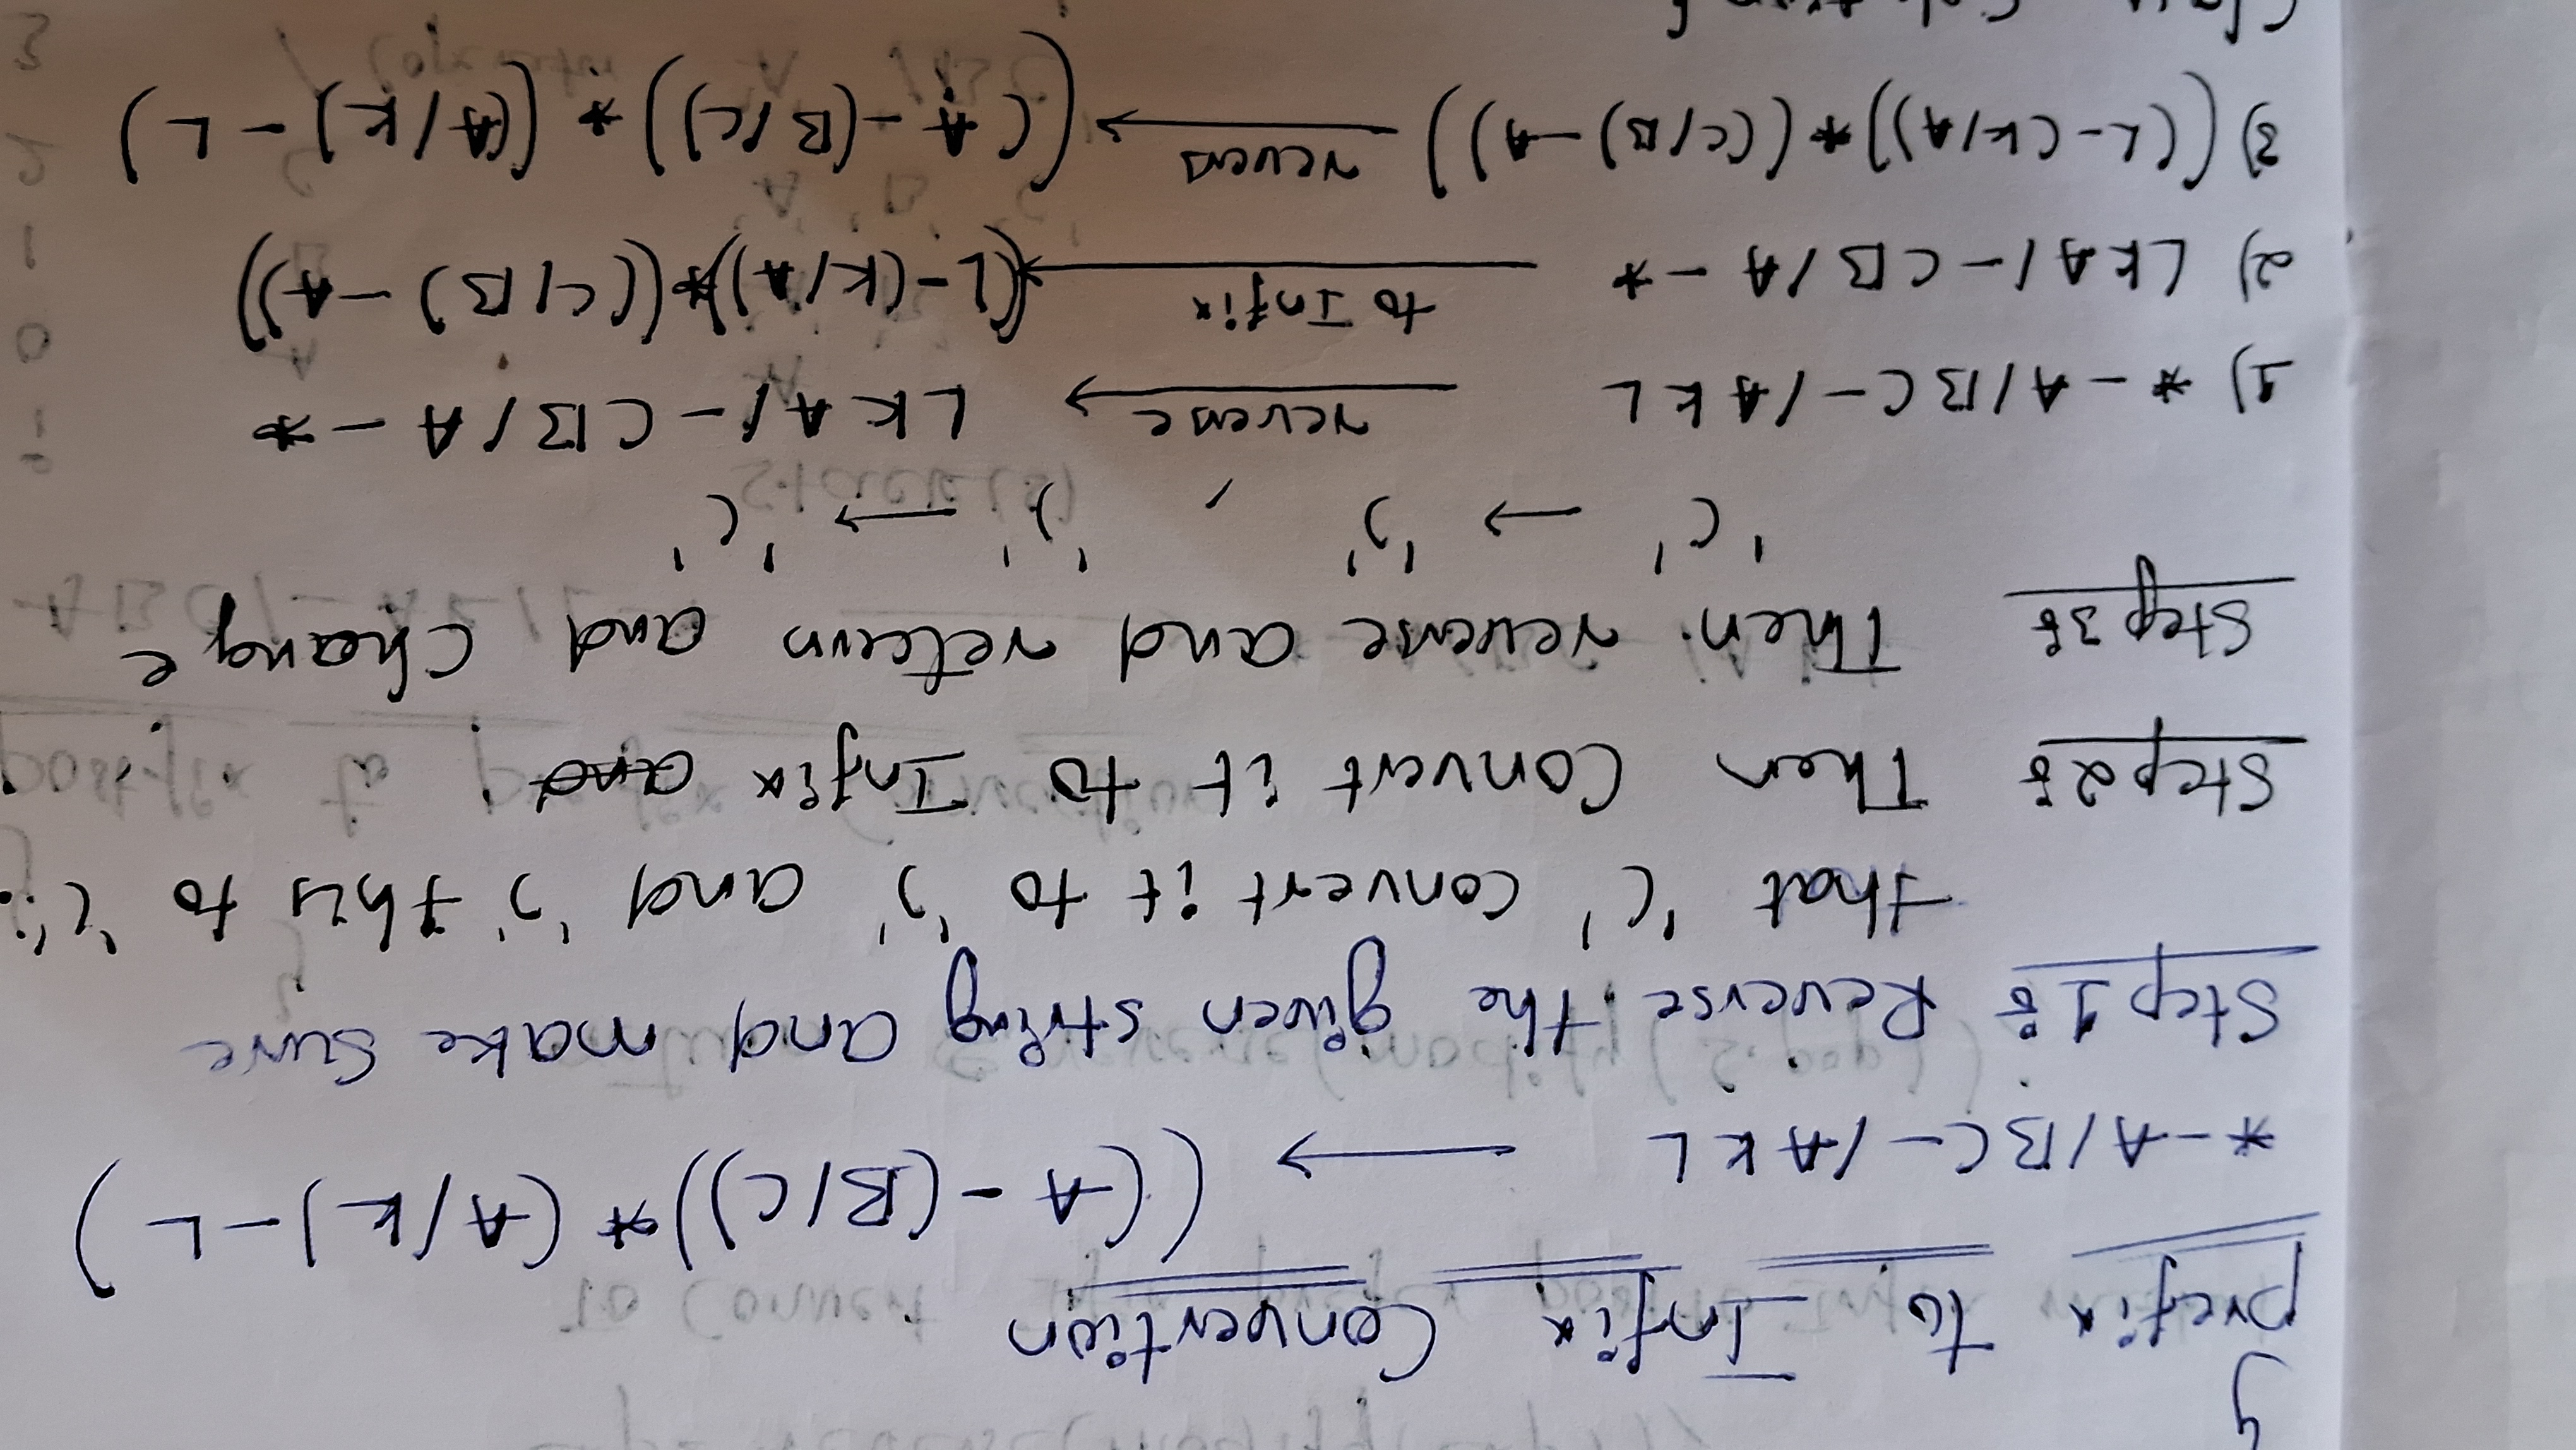 }
prefix to Infix Convertion
*-A/BC-/AKL → ((A-(B/C))*(A/K)-L)
Step 1: Reverse the given string and make sure
that '(' convert it to ')' and ')' this to '('.
Step 2: Then Convert it to Infix and
Step 3: Then reverse and return and Change
'(' → ')' , ')' → '('
1) *-A/BC-/AKL reverse → LKA/-CB/A-*
2) LKA/-CB/A-* to Infix → ((L-(K/A))*((C/B)-A))
3) ((L-(K/A))*((C/B)-A)) revers → ((A-(B/C))*((A/K)-L)